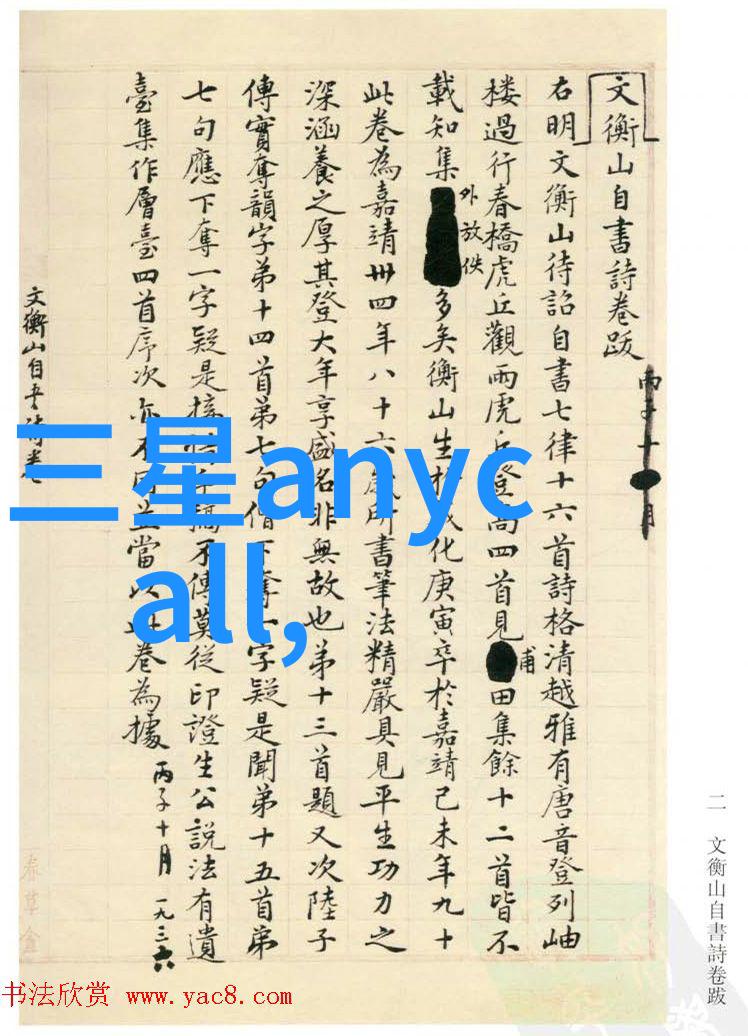 文衡山自書詩卷跋
丙子十月
右明文衡山待詔自書七律十六首詩格清越雅有唐音登列岫
楼過行春橋虎丘觀雨虎丘登高四首見甫田集餘十二首皆不
載知集外放佚多矣衡山生於成化庚寅卒於嘉靖己未年九十
此卷為嘉靖卅四年八十六歲所書筆法精嚴具見平生功力之
深涵養之厚其登大年享盛名非無故也弟十三首題又次陸子
傳實奪韻字弟十四首弟七句僧下奪一字疑是聞弟十五首弟
七句應下奪一字疑是接不傳莫從印證生公說法有遺
臺集作層臺四首序次亦不同並當以此卷為據
丙子十月
一九三六
文衡山自書诗卷
三星anyc
all,
二 文衡山自書詩卷跋
书法欣赏 www.yac8.com